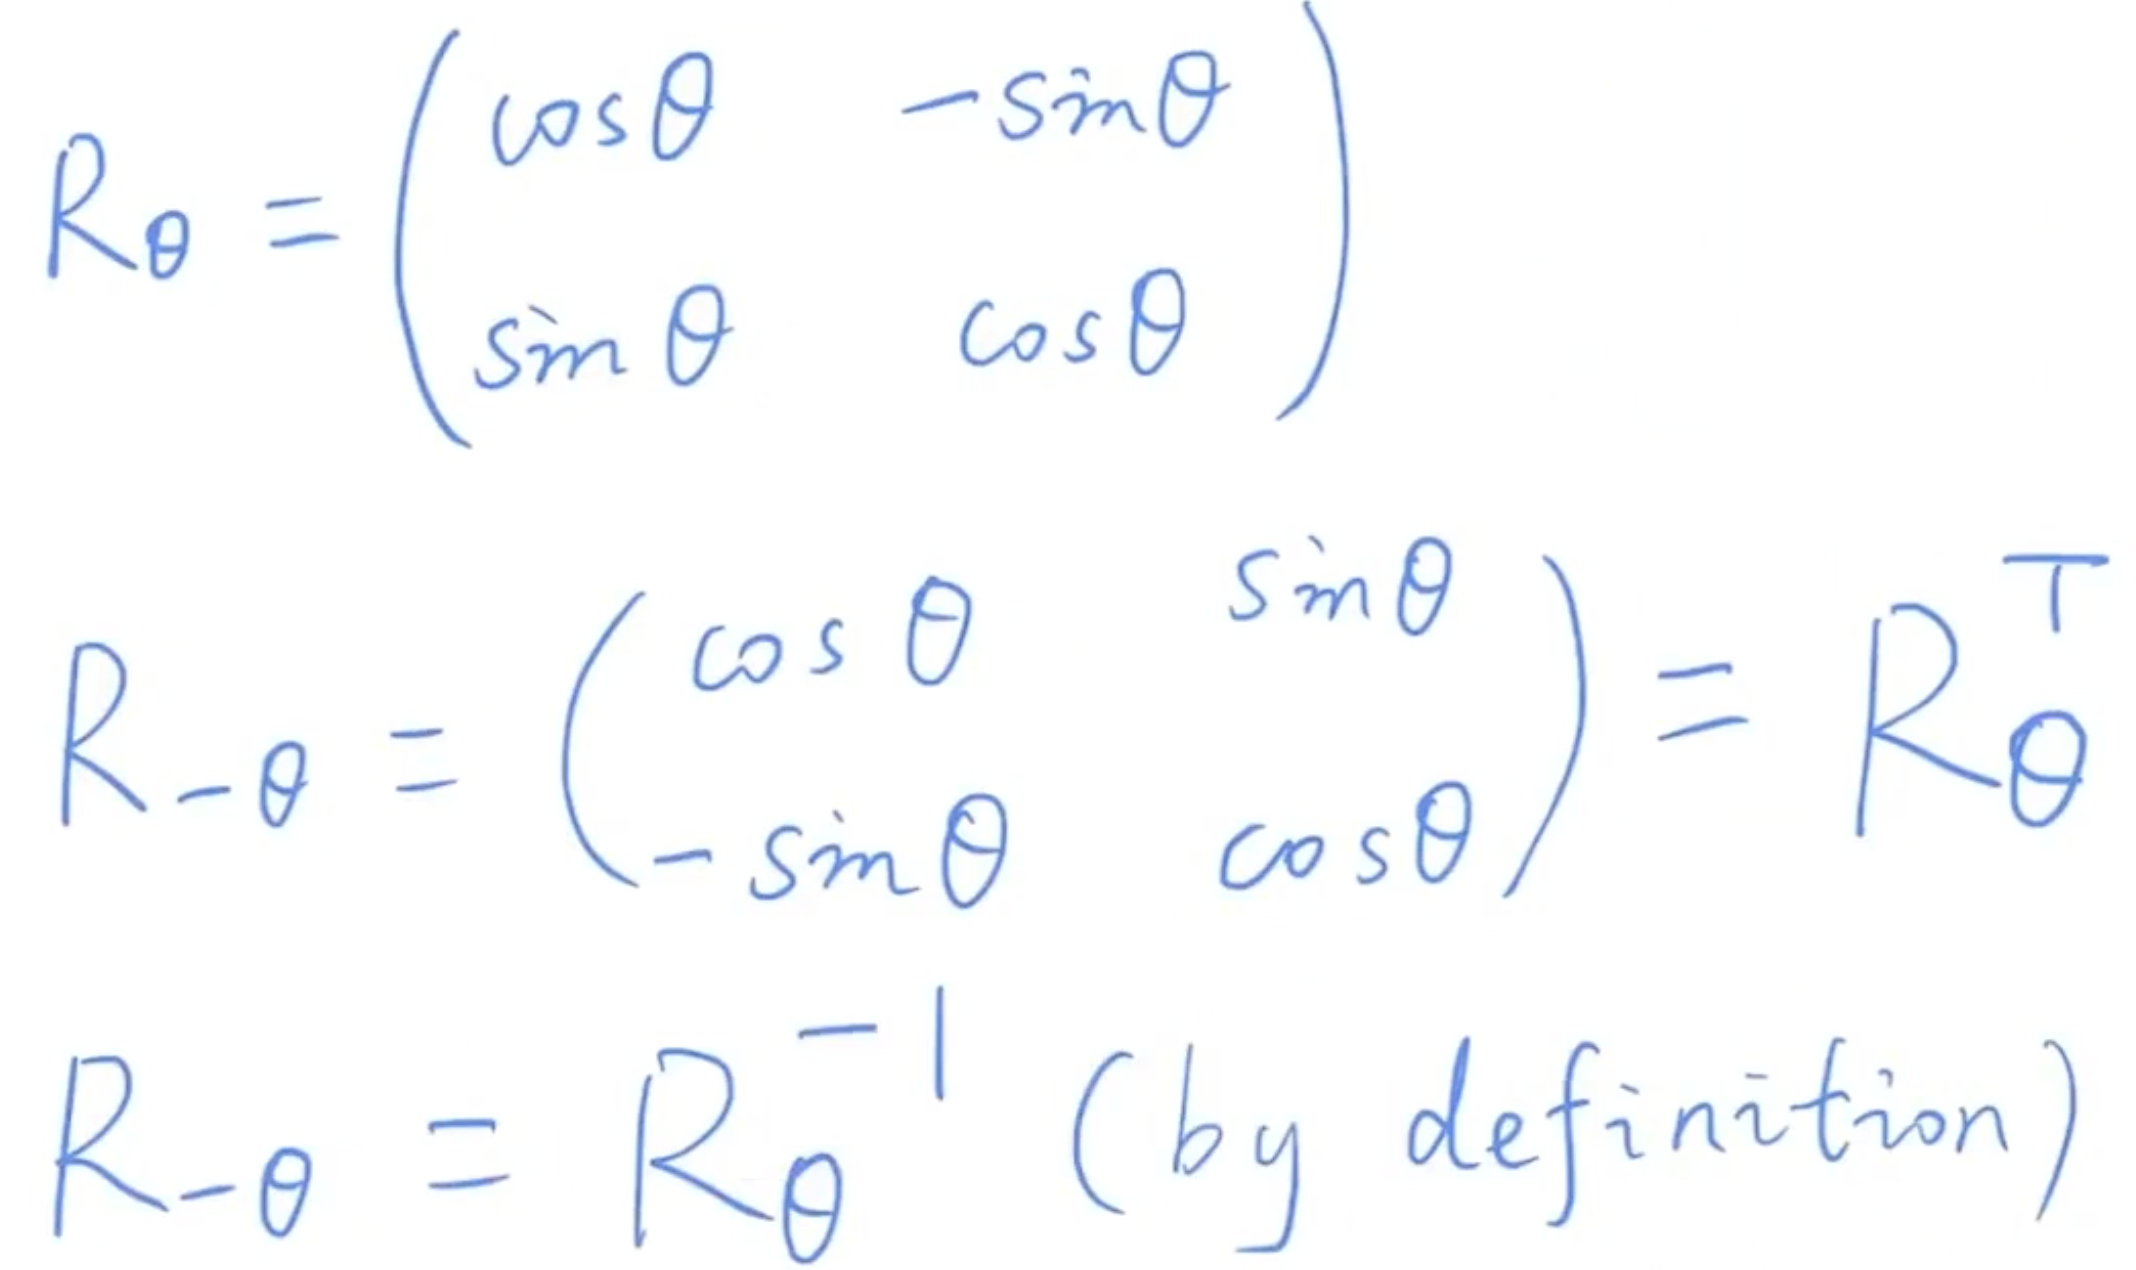 R_θ = ( cosθ -sinθ
sinθ cosθ )
R_{-θ} = ( cosθ sinθ
-sinθ cosθ ) = R_θ^T
R_{-θ} = R_θ^{-1} (by definition)